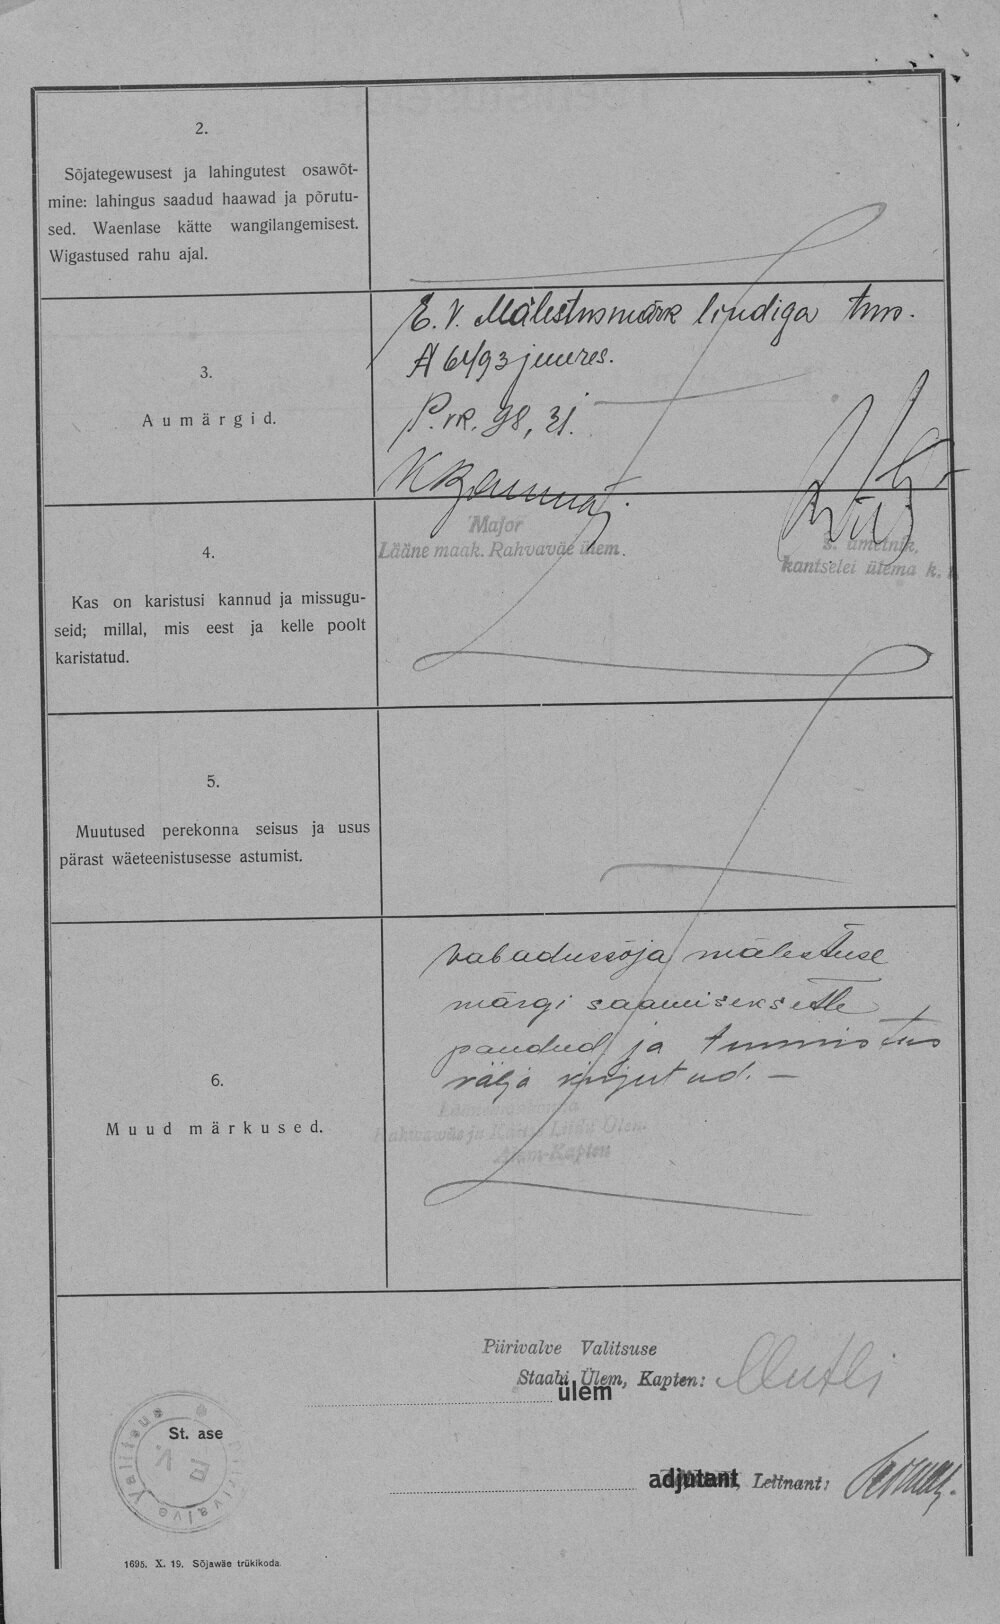 2.
Sõjategewusest ja lahingutest osawõt-
mine: lahingus saadud haawad ja põrutu-
sed. Waenlase kätte wangilangemisest.
Wigastused rahu ajal.
E. V. Mälestusmärk lindiga tun.
6493 juures.
3.
Aumärgid.
P. vk. 98, 31.
Major
Lääne maak. Rahvaväe ülem.
s. ametnik,
kantselei ülema k. t.
4.
Kas on karistusi kannud ja missugu-
seid; millal, mis eest ja kelle poolt
karistatud.
5.
Muutused perekonna seisus ja usus
pärast wäeteenistusesse astumist.
Vabadussõja mälestuse
märgi saamiseks ette
pandud ja tunnistus
välja kirjutud. —
6.
Muud märkused.
Rahwawäe ja Kaitse Liidu Ülem
Alam-Kapten
Piirivalve Valitsuse
Staabi Ülem, Kapten:
ülem
St. ase
Piirivalve Valitsus
E V
adjutant, Leitnant:
1695. X. 19. Sõjawäe trükikoda.